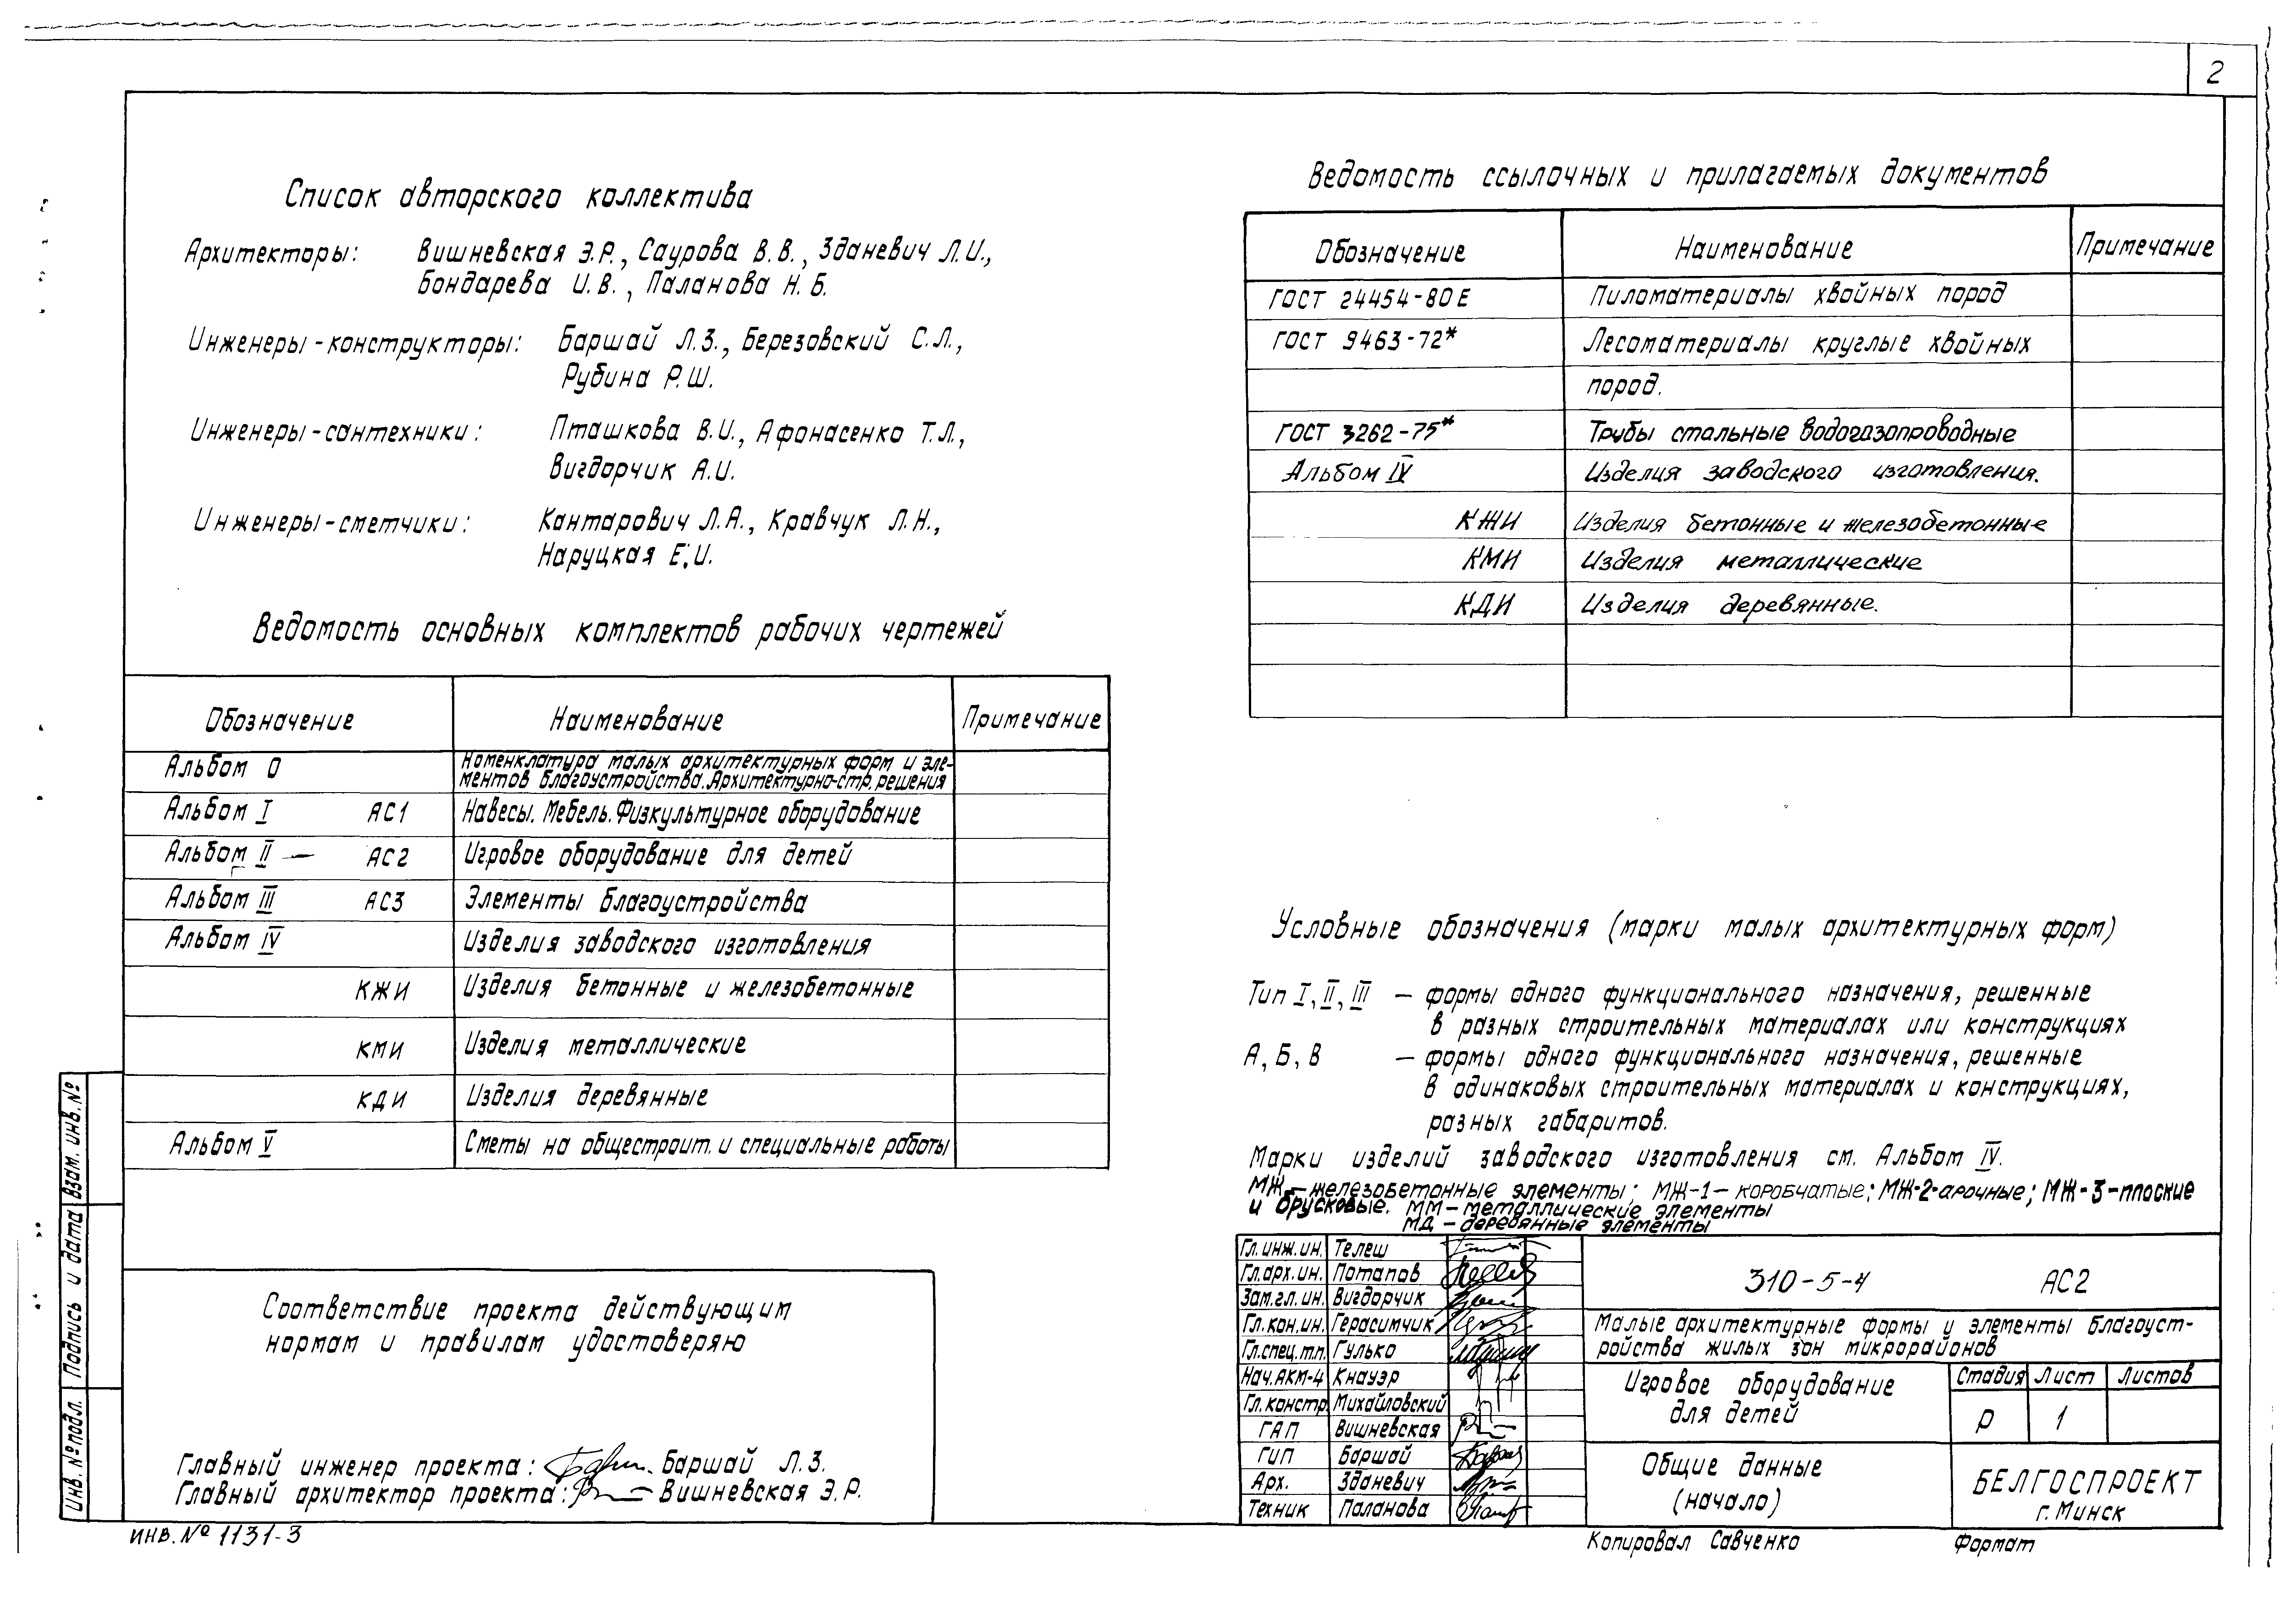 2
Список авторского коллектива
Архитекторы: Вишневская Э.Р., Саурова В.В., Зданевич Л.И.,
Бондарева И.В., Паланова Н.Б.
Инженеры-конструкторы: Баршай Л.З., Березовский С.Л.,
Рубина Р.Ш.
Инженеры-сантехники: Пташкова В.И., Афонасенко Т.Л.,
Вигдорчик А.И.
Инженеры-сметчики: Кантарович Л.А., Кравчук Л.Н.,
Наруцкая Е.И.
Ведомость основных комплектов рабочих чертежей
Обозначение Наименование Примечание
Альбом 0 Номенклатура малых архитектурных форм и эле-
ментов благоустройства. Архитектурно-стр. решения
Альбом I АС1 Навесы. Мебель. Физкультурное оборудование
Альбом II — АС2 Игровое оборудование для детей
Альбом III АС3 Элементы благоустройства
Альбом IV Изделия заводского изготовления
КЖИ Изделия бетонные и железобетонные
КМИ Изделия металлические
КДИ Изделия деревянные
Альбом V Сметы на общестроит. и специальные работы
Соответствие проекта действующим
нормам и правилам удостоверяю
Главный инженер проекта: Баршай Л.З.
Главный архитектор проекта: Вишневская Э.Р.
Взам. инв. №
Подпись и дата
Инв. № подл.
инв. № 1131-3
Ведомость ссылочных и прилагаемых документов
Обозначение Наименование Примечание
ГОСТ 24454-80Е Пиломатериалы хвойных пород
ГОСТ 9463-72* Лесоматериалы круглые хвойных
пород.
ГОСТ 3262-75* Трубы стальные водогазопроводные
Альбом IV Изделия заводского изготовления.
КЖИ Изделия бетонные и железобетонные
КМИ Изделия металлические
КДИ Изделия деревянные.
Условные обозначения (марки малых архитектурных форм)
Тип I, II, III — формы одного функционального назначения, решенные
в разных строительных материалах или конструкциях
А, Б, В — формы одного функционального назначения, решенные
в одинаковых строительных материалах и конструкциях,
разных габаритов.
Марки изделий заводского изготовления см. Альбом IV.
МЖ — железобетонные элементы; МЖ-1 — коробчатые; МЖ-2-арочные; МЖ-3-плоские
и брусковые. ММ — металлические элементы
МД — деревянные элементы
Гл. инж. ин. Телеш
Гл. арх. ин. Потапов
Зам. гл. ин. Вигдорчик
Гл. кон. ин. Герасимчик
Гл. спец. т.п. Гулько
Нач. АКМ-4 Кнауэр
Гл. констр. Михайловский
ГАП Вишневская
ГИП Баршай
Арх. Зданевич
Техник Паланова
310-5-4 АС2
Малые архитектурные формы и элементы благоуст-
ройства жилых зон микрорайонов
Игровое оборудование
для детей
Стадия Лист Листов
Р 1
Общие данные
(начало)
БЕЛГОСПРОЕКТ
г. Минск
Копировал Савченко Формат